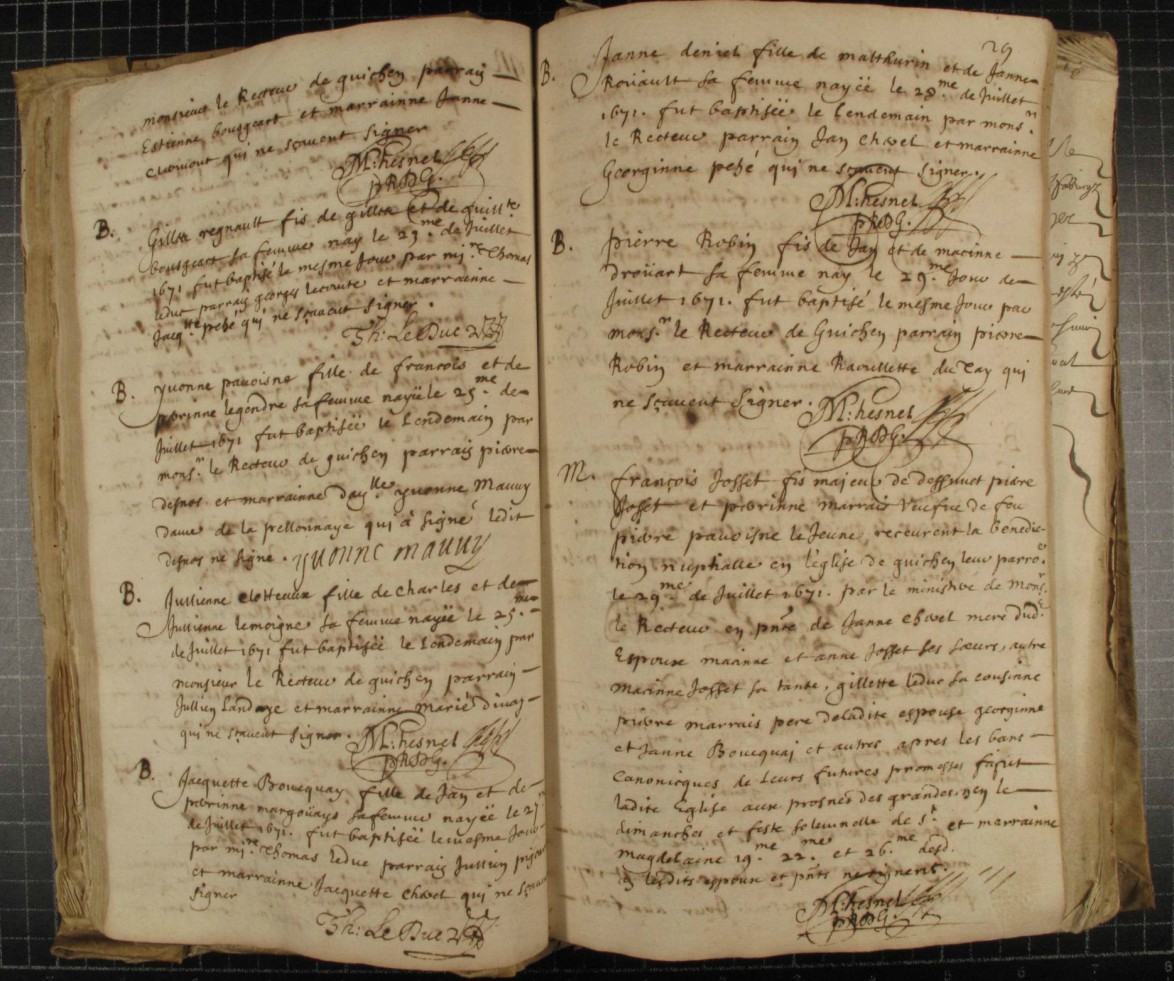 monsieur le Recteur de guichen parrain
Estienne bougeart et marrainne Janne
qui ne sçavent signer
M: hesnel
pRDG.
B. Gilles regnault fis de gilles et de guill.te
bougeart sa femme nay le 29.me de Juillet
1671 fut baptisé le mesme Jour par mi.re Thomas
leduc parrain georges lecomte et marrainne
Jacq.tte pehé qui ne sçavent signer.
Th: Le Duc
B. yvonne pavoisne fille de francois et de
perrinne legendre sa femme nayë le 25.me de
Juillet 1671 fut baptiséë le Lendemain par
mons.r le Recteur de guichen parrain pierre
desnos et marrainne day.lle yvonne Mauny
dame de la pellonnaye qui à signé ledit
desnos ne signe. yvonne mauny
B. Jullienne clotteaux fille de Charles et de
Jullienne lemoigne sa femme nayëë le 25.me
de Juillet 1671 fut baptiséë le Lendemain par
monsieur le Recteur de guichen parrain
Jullien Landaye et marrainne Marie
qui ne sçavent signer. M: hesnel
pRDG.
B. Jacquette Boucquay fille de Jan et de
perrinne margoüays sa femme nayëë le 27
de Juillet 1671. fut baptiséë le mesme Jour
par mi.re Thomas leduc parrain Jullien
et marrainne Jacquette Chovel qui ne sçavent
signer
Th: Le Duc
29
B. Janne deniel fille de matthurin et de Janne
Roüault sa femme nayëë le 28.me de Juillet
1671. fut baptiséë le Lendemain par mons.r
le Recteur parrain Jan Chovel et marrainne
Georginne pehé qui ne sçavent signer.
M: hesnel
pRDG.
B. pierre Robin fis de Jan et de macinne
droüart sa femme nay le 29.me Jour de
Juillet 1671. fut baptisé le mesme Jour par
mons.r le Recteur de Guichen parrain pierre
Robin et marrainne Raoullette du Tay qui
ne sçavent signer. M: hesnel
pRDG.
M. françois Josset fis majeur de deffunct pierre
Josset et perrinne marrais veufve de feu
pierre pavoisne le Jeune, receurent la benedic-
tion nuphalle en l'église de guichen leur parro.e
le 29.me de Juillet 1671. par le ministere de Mons.r
le Recteur en pnce de Janne Chovel mere dud.
Espoux macinne et anne Josset ses sœurs, autre
macinne Josset sa tante, gillette leduc sa cousinne
pierre marrais pere deladite espouse georginne
et Janne Boucquai et autres apres les bans
canonicques de Leurs futures promesses
ladite Eglise aux prosnes des grandes le
dimanches et feste solemnelle de s.t et marrainne
magdelaine 19.me 22.me et 26.me
lesdits espoux et pnts ne signent.
M: hesnel
pRDG.